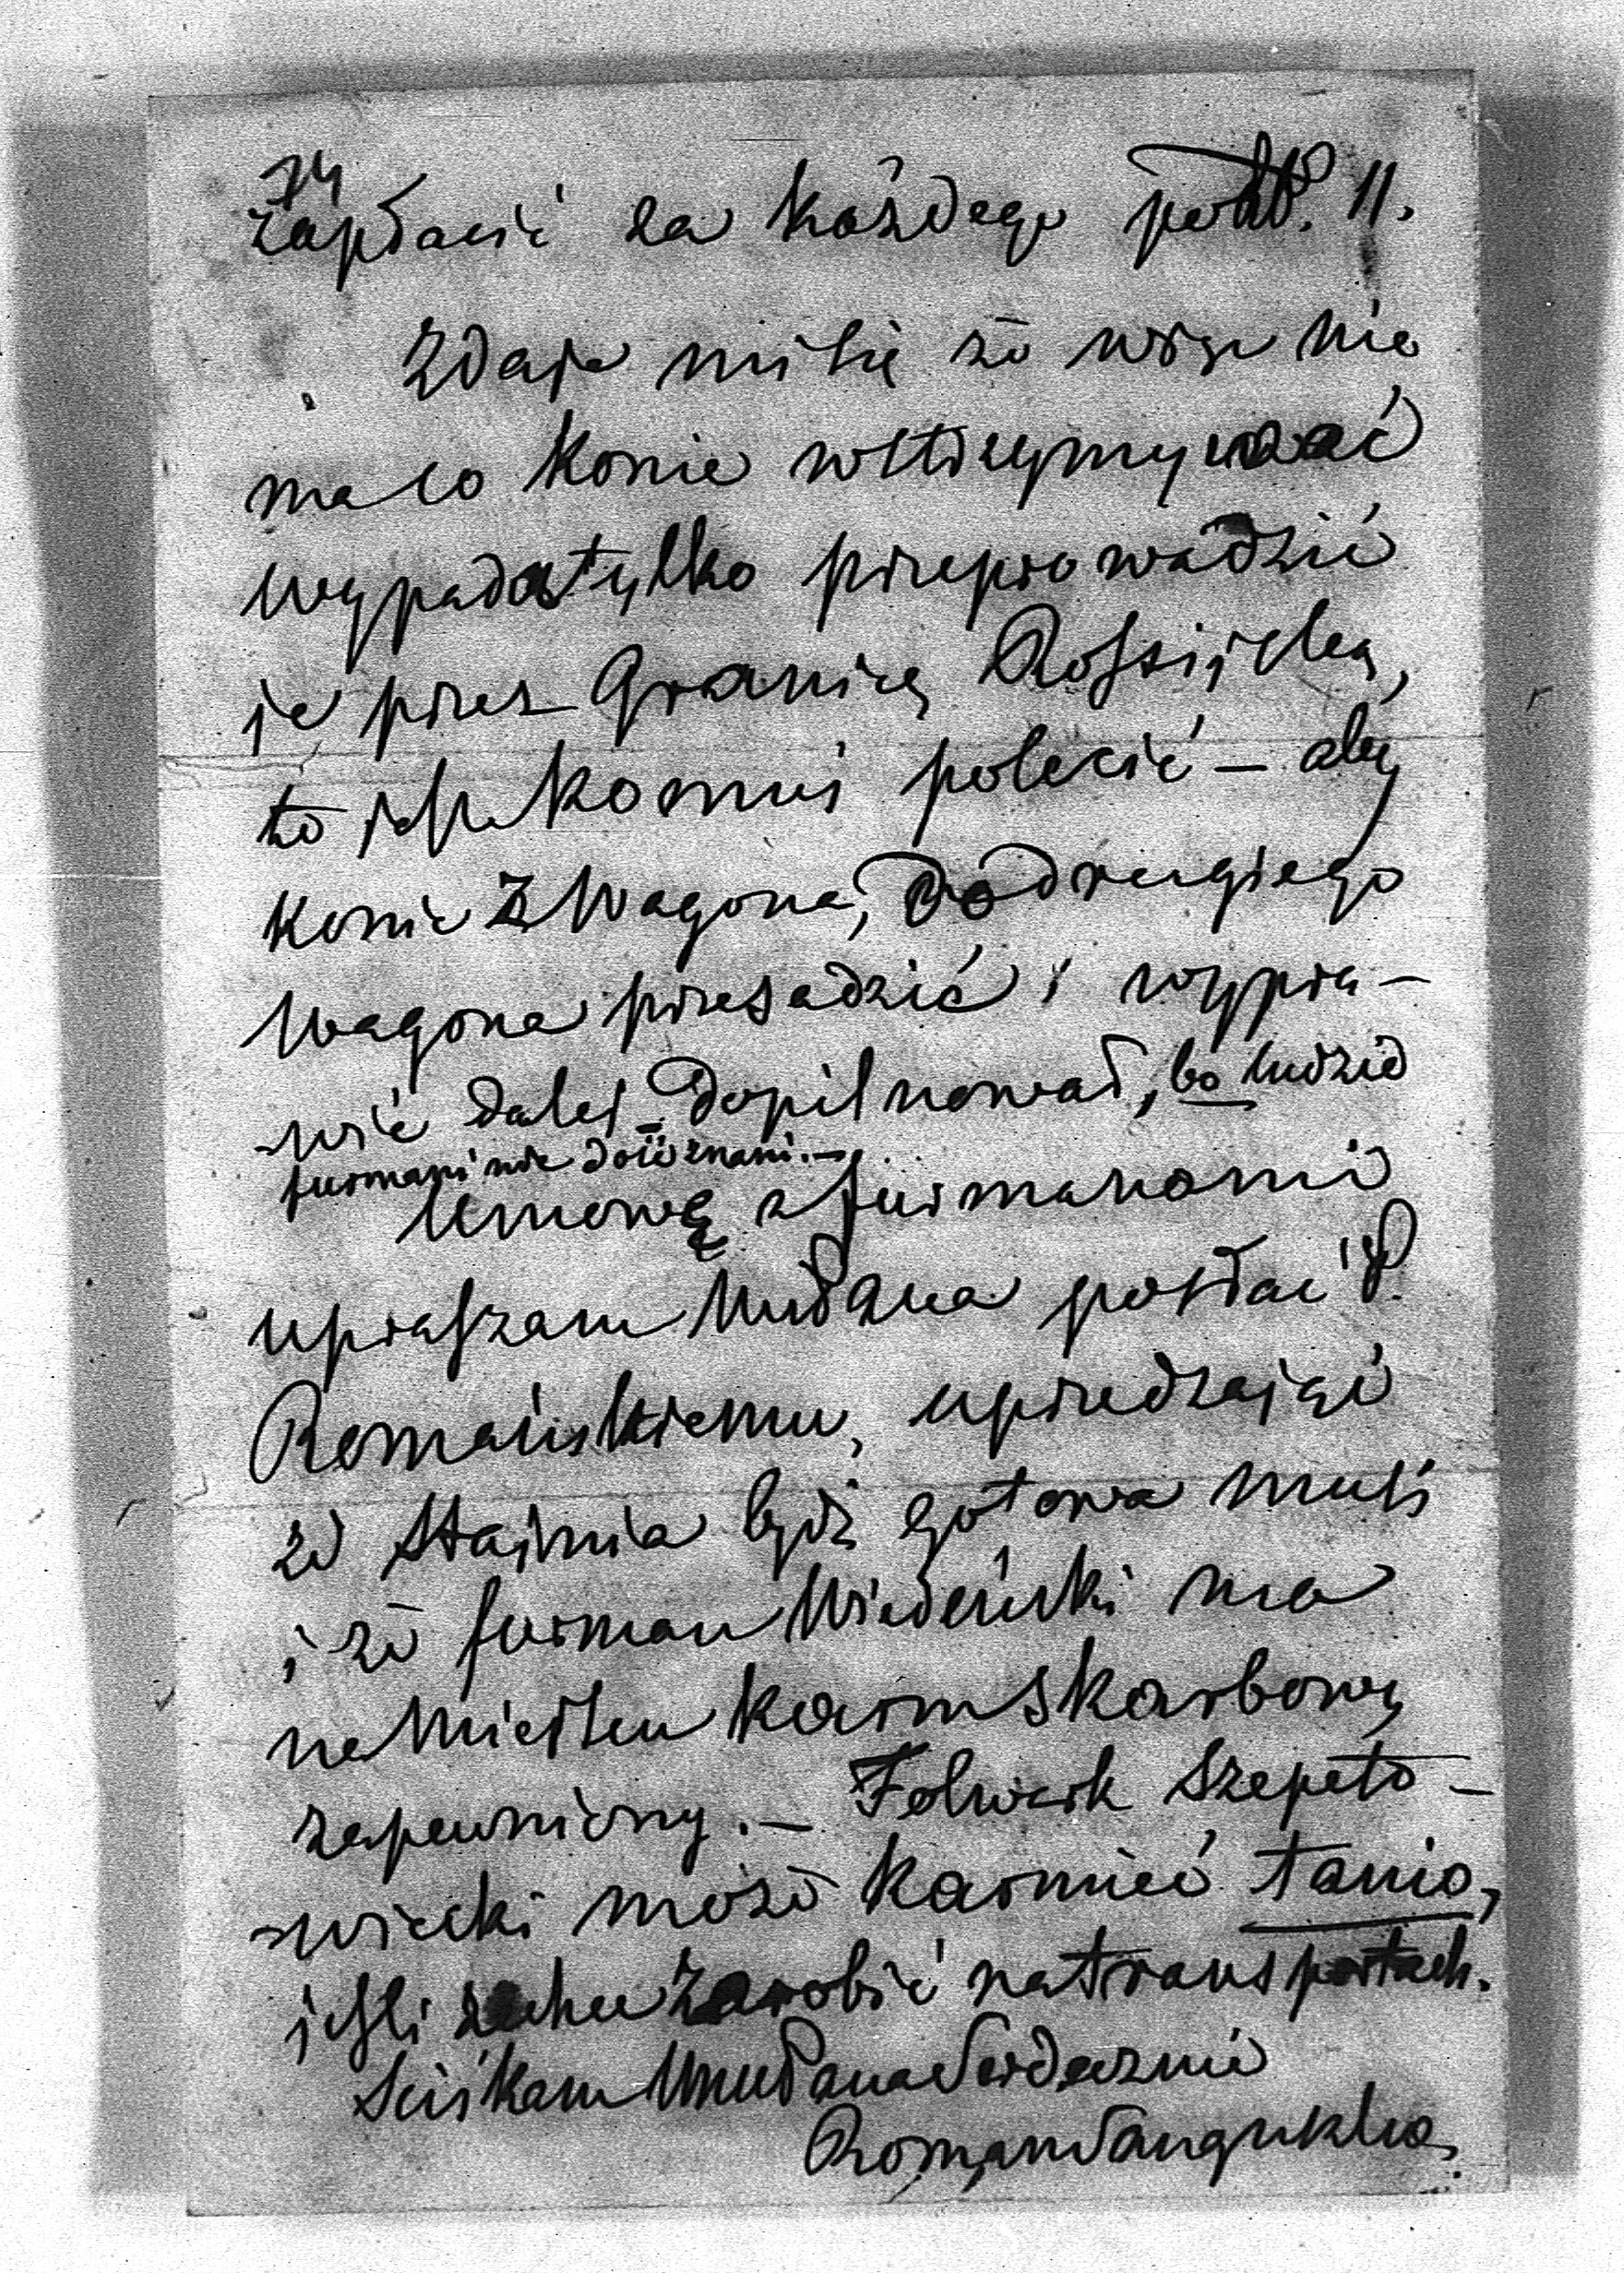 74
zapłacić za każdego po tal. 11.
Zdaje mi się że więc nie
ma co konie wstrzymywać
wypada tylko przeprowadzić
je przez Granicę Rossijską,
to jest komuś polecić – aby
konie z Wagona, do drugiego
Wagona przesadzić i wypra-
-wić dalej dopilnował, bo ludzie
furmani nie doświadczeni.–
Umowę z furmanami
upraszam WmPana posłać P.
Romańskiemu, uprzedzając
że stajnia bydź gotowa musi
i że furman Wiedeński ma
na Miejscu karm skarbowy
zapewniony.– Folwark Szepeto-
-wiecki może karmić tanio,
jeśli zechce zarobić na transportach.
Sciskam WmPana Serdecznie
Roman Sanguszko.